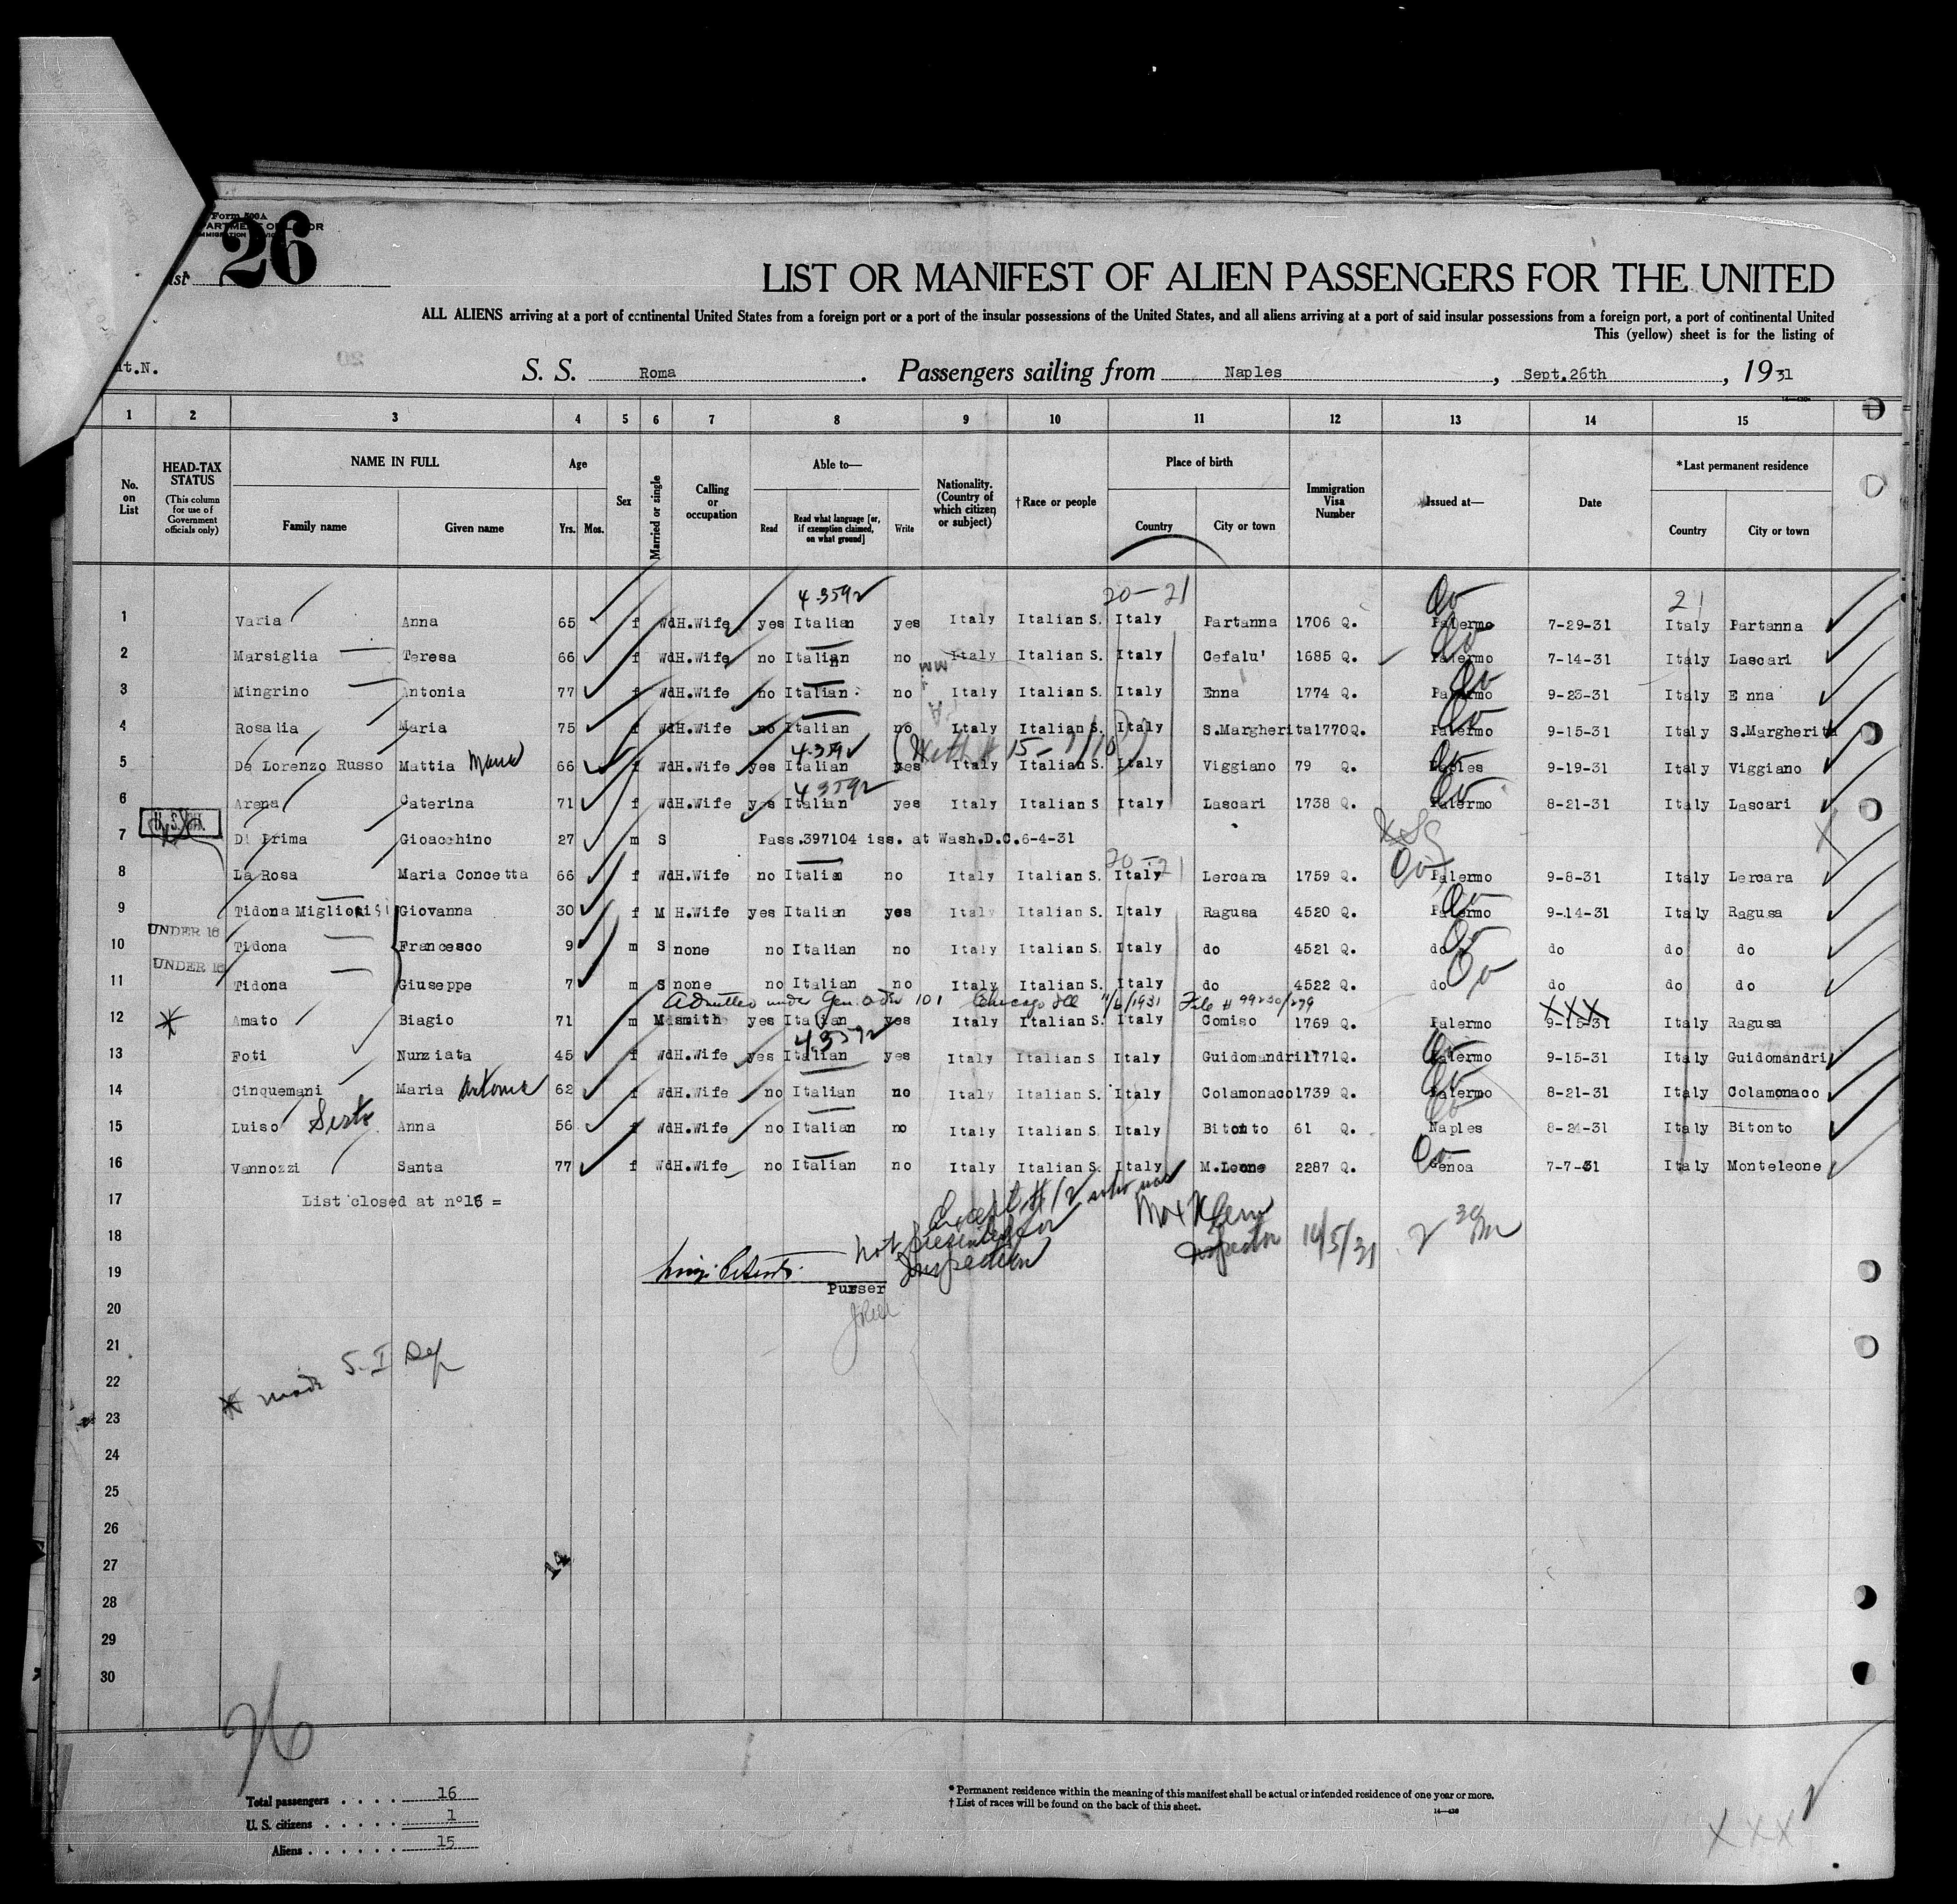 Form 500A
26
LIST OR MANIFEST OF ALIEN PASSENGERS FOR THE UNITED
ALL ALIENS arriving at a port of continental United States from a foreign port or a port of the insular possessions of the United States, and all aliens arriving at a port of said insular possessions from a foreign port, a port of continental United
This (yellow) sheet is for the listing of
S. S. Roma . Passengers sailing from Naples , Sept.26th , 1931
1 2 3 4 5 6 7 8 9 10 11 12 13 14 15
No. on List
HEAD-TAX STATUS (This column for use of Government officials only)
NAME IN FULL Family name Given name
Age Yrs. Mos.
Sex
Married or single
Calling or occupation
Able to— Read Read what language [or, if exemption claimed, on what ground] Write
Nationality. (Country of which citizen or subject)
†Race or people
Place of birth Country City or town
Immigration Visa Number
Issued at—
Date
*Last permanent residence Country City or town
4-3592 20-21 21
1 Varia Anna 65 f Wd H.Wife yes Italian yes Italy Italian S. Italy Partanna 1706 Q. Palermo 7-29-31 Italy Partanna
2 Marsiglia Teresa 66 f Wd H.Wife no Italian no Italy Italian S. Italy Cefalu' 1685 Q. Palermo 7-14-31 Italy Lascari
3 Mingrino Antonia 77 f Wd H.Wife no Italian no Italy Italian S. Italy Enna 1774 Q. Palermo 9-23-31 Italy Enna
4 Rosalia Maria 75 f Wd H.Wife no Italian no Italy Italian S. Italy S.Margherita 1770Q. Palermo 9-15-31 Italy S.Margherita
5 De Lorenzo Russo Mattia Maria 66 f Wd H.Wife yes Italian yes Italy Italian S. Italy Viggiano 79 Q. Naples 9-19-31 Italy Viggiano
43592
6 Arena Caterina 71 f Wd H.Wife yes Italian yes Italy Italian S Italy Lascari 1738 Q. Palermo 8-21-31 Italy Lascari
7 Di Prima Gioacchino 27 m S Pass.397104 iss. at Wash.D.C.6-4-31
20-21
8 La Rosa Maria Concetta 66 f Wd H.Wife no Italian no Italy Italian S. Italy Lercara 1759 Q. Palermo 9-8-31 Italy Lercara
9 Tidona Migliorisi Giovanna 30 f M H.Wife yes Italian yes Italy Italian S. Italy Ragusa 4520 Q. Palermo 9-14-31 Italy Ragusa
UNDER 16
10 Tidona Francesco 9 m S none no Italian no Italy Italian S. Italy do 4521 Q. do do do do
UNDER 16
11 Tidona Giuseppe 7 m S none no Italian no Italy Italian S. Italy do 4522 Q. do do do do
Admitted under Gen. Order 101 Chicago Ill 11/6/1931 File # 99230/279 XXX
12 Amato Biagio 71 m M smith yes Italian yes Italy Italian S. Italy Comiso 1769 Q. Palermo 9-15-31 Italy Ragusa
43592
13 Foti Nunziata 45 f Wd H.Wife yes Italian yes Italy Italian S Italy Guidomandri 1171Q. Palermo 9-15-31 Italy Guidomandri
14 Cinquemani Maria Antonia 62 f Wd H.Wife no Italian no Italy Italian S. Italy Colamonaco 1739 Q. Palermo 8-21-31 Italy Colamonaco
15 Luiso Sisto Anna 56 f Wd H.Wife no Italian no Italy Italian S. Italy Bitonto 61 Q. Naples 8-24-31 Italy Bitonto
16 Vannozzi Santa 77 f Wd H.Wife no Italian no Italy Italian S. Italy M.Leone 2287 Q. Genoa 7-7-31 Italy Monteleone
17 List closed at n°16 =
Except #12 who was
not presented for
Inspection
Max Klein
Inspector 10/5/31 2 30 Pm
18
19
Purser
20
21
* made S.I Def
22
23
24
25
26
27
14
28
29
30
26
Total passengers . . . . 16
U. S. citizens . . . . . 1
Aliens . . . . . . 15
* Permanent residence within the meaning of this manifest shall be actual or intended residence of one year or more.
† List of races will be found on the back of this sheet.
XXX